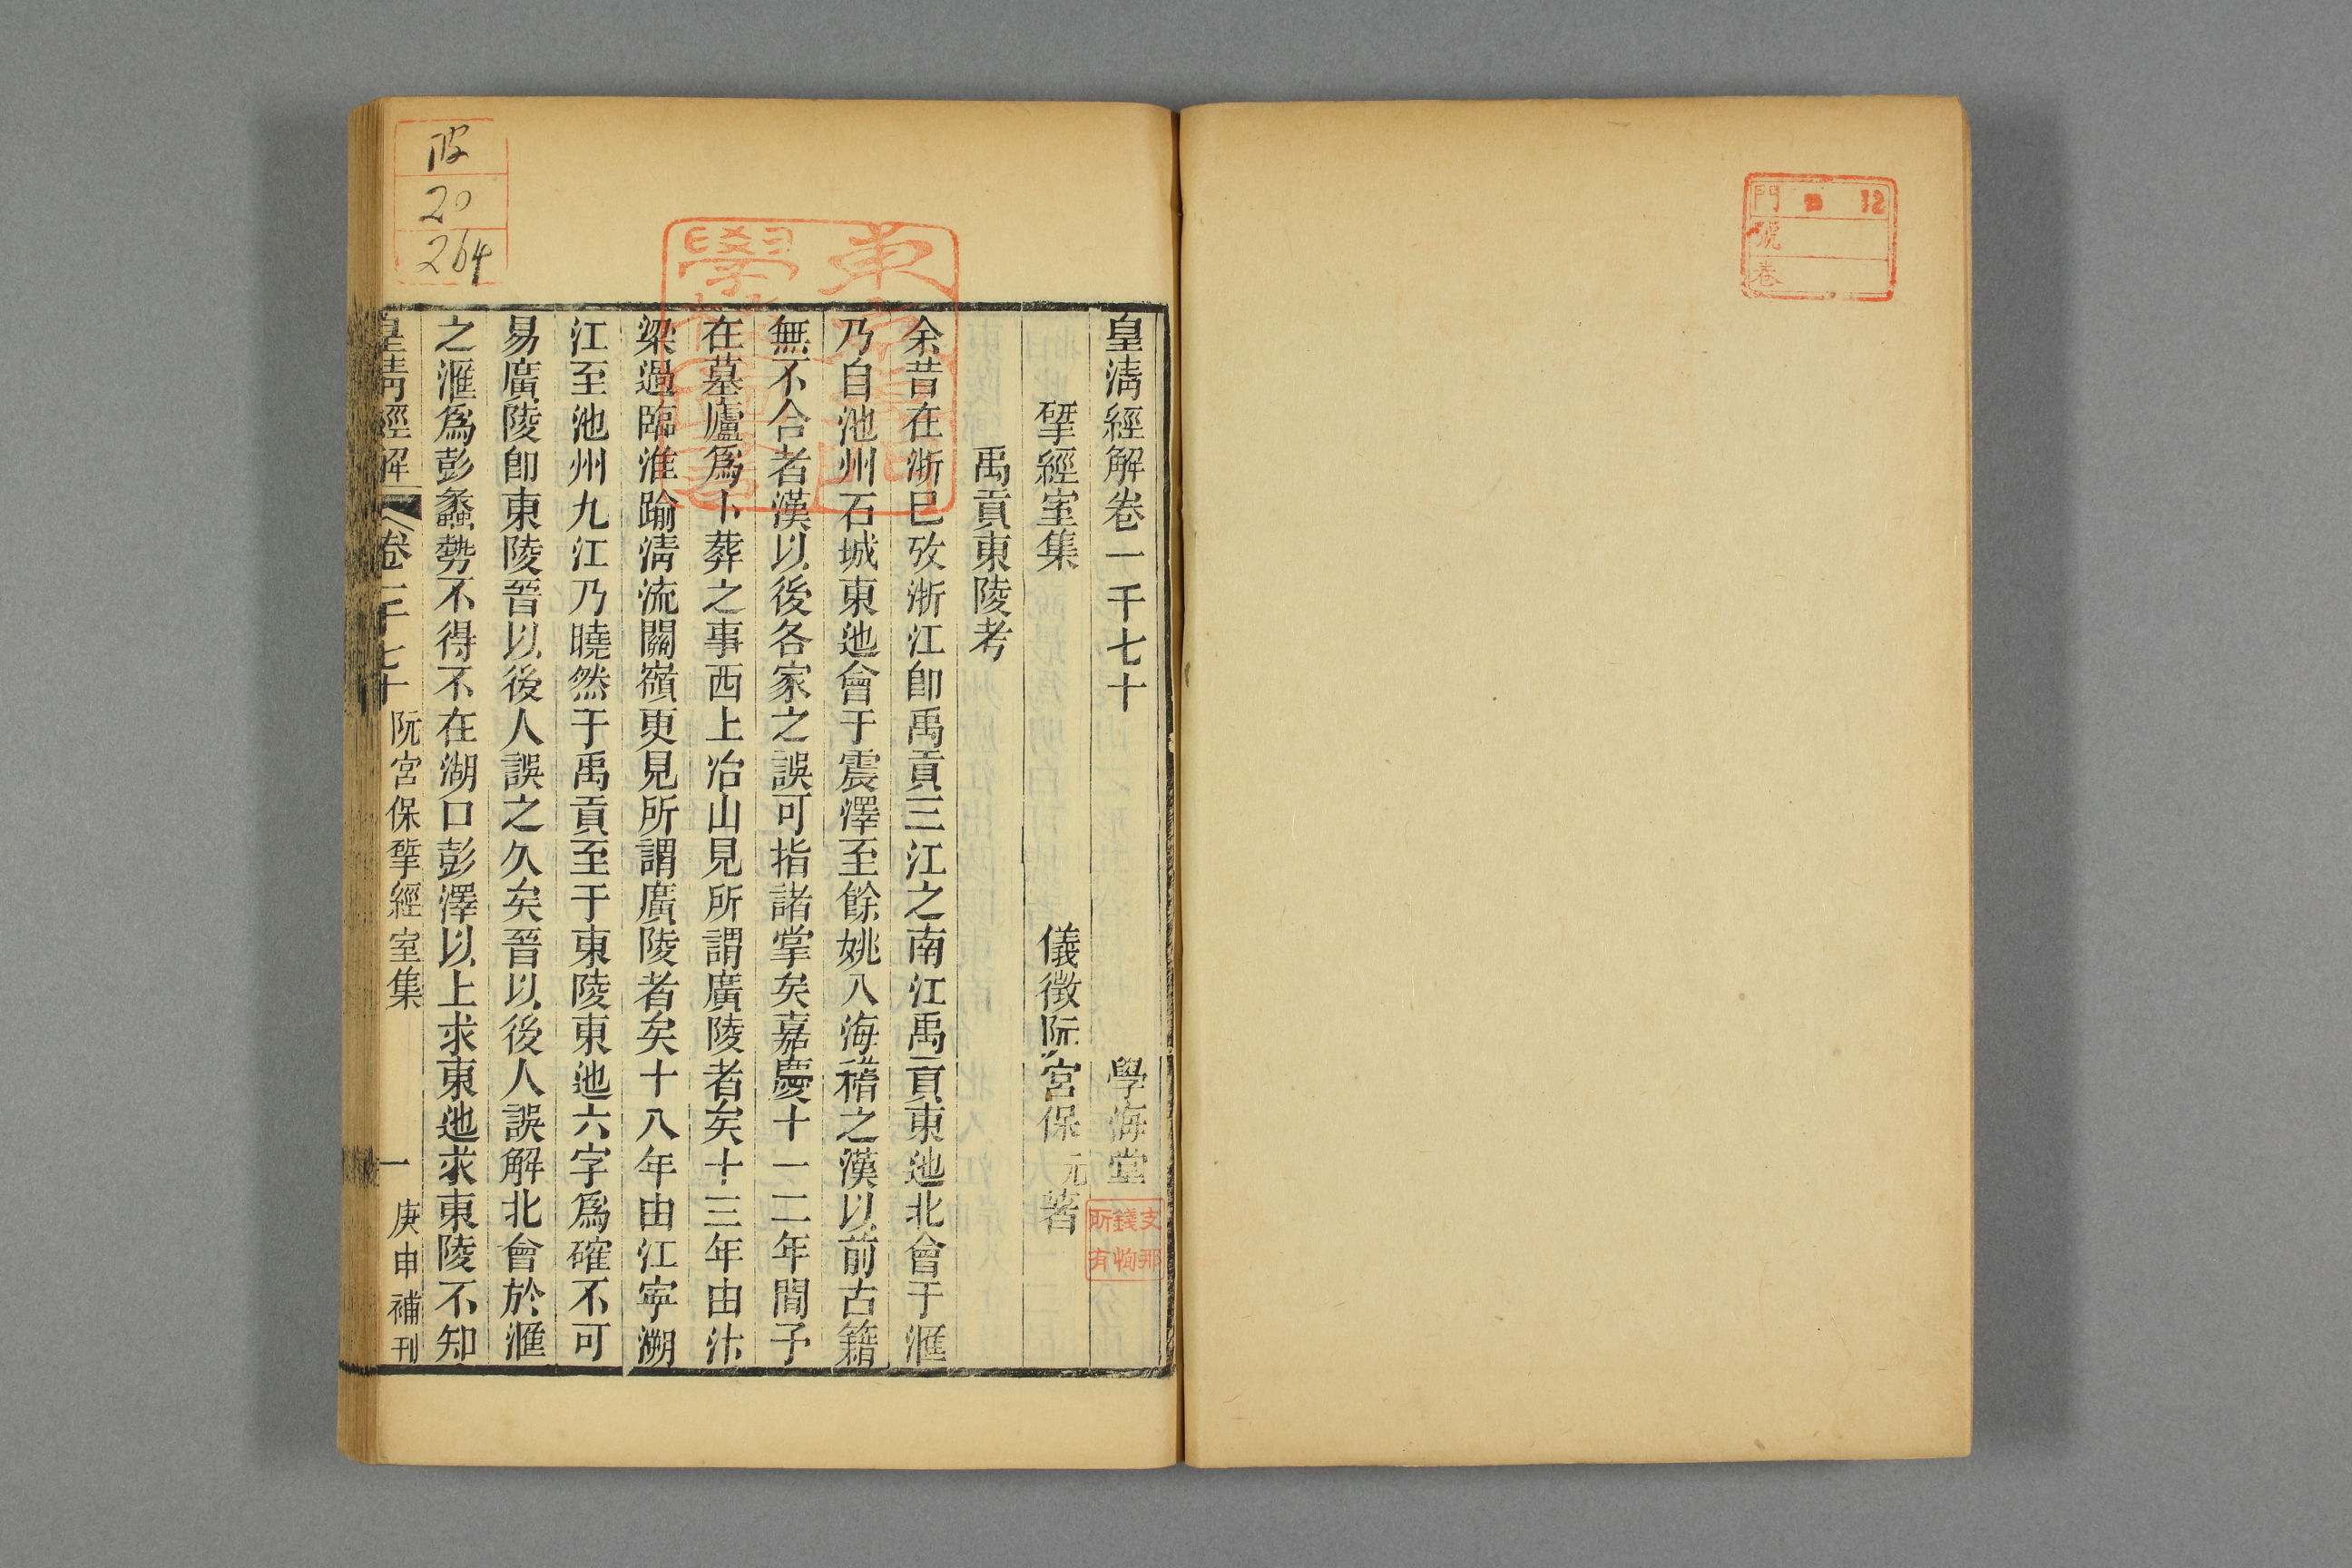 門 12
號
卷
皇淸經解卷一千七十 學海堂
揅經室集 儀徵阮宮保元著
禹貢東陵考
余昔在浙巳攷浙江卽禹貢三江之南江禹貢東迆北會于滙
乃自池州石城東迆會于震澤至餘姚入海稽之漢以前古籍
無不合者漢以後各家之誤可指諸掌矣嘉慶十一二年閒予
在墓廬爲卜葬之事西上冶山見所謂廣陵者矣十三年由汴
梁過臨淮踰淸流關嶺更見所謂廣陵者矣十八年由江寧溯
江至池州九江乃曉然于禹貢至于東陵東迆六字爲確不可
易廣陵卽東陵晉以後人誤之久矣晉以後人誤解北會於滙
之滙爲彭蠡勢不得不在湖口彭澤以上求東迆求東陵不知
皇淸經解 卷一千七十 阮宮保揅經室集 一 庚申補刊
支那
錢恂
所有
20
264